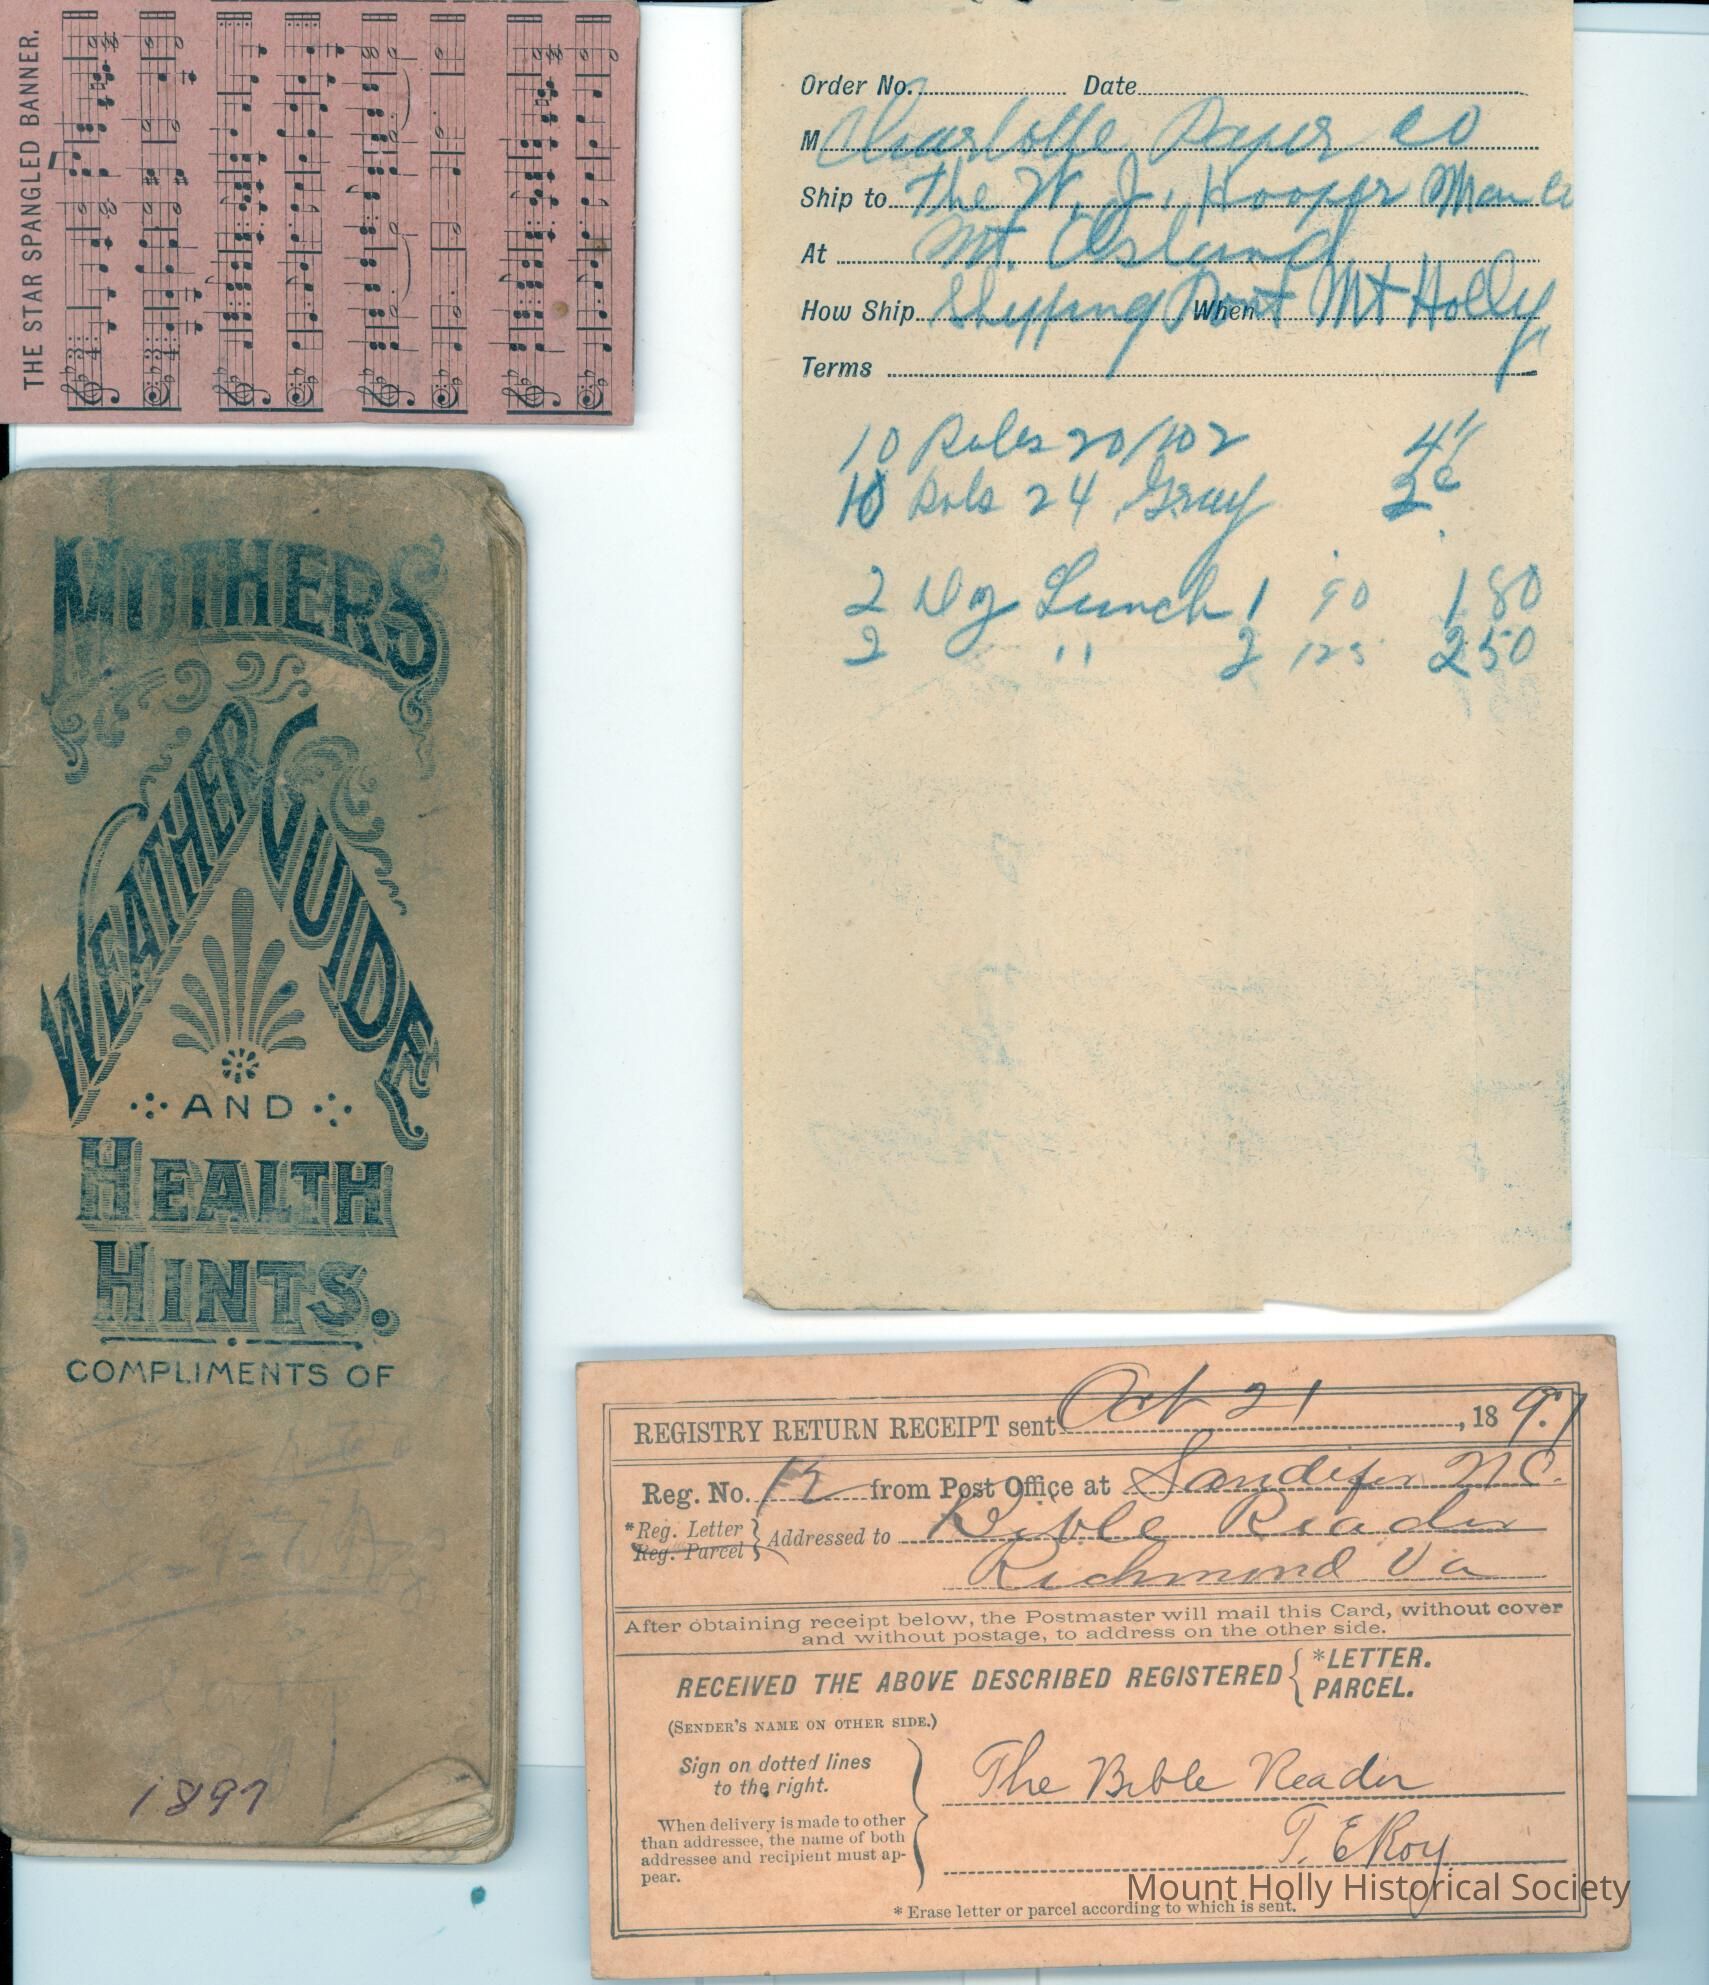 THE STAR SPANGLED BANNER.
Order No. Date
M Charlotte Paper Co
Ship to The W. J. Hooper Man Co
At Mt. Island
How Ship Shipping Point When Mt Holly
Terms
10 Rols 20/102 4
10 Rols 24 Gray 3¢
2 Dz Lunch 1 90 1 80
2 " 2 125 2 50
MOTHERS
WEATHER GUIDE
AND
HEALTH
HINTS.
COMPLIMENTS OF
1897
REGISTRY RETURN RECEIPT sent Oct 21, 1897
Reg. No. 12 from Post Office at Sandifer N.C.
*Reg. Letter
Reg. Parcel } Addressed to Bible Reader
Richmond Va
After obtaining receipt below, the Postmaster will mail this Card, without cover
and without postage, to address on the other side.
RECEIVED THE ABOVE DESCRIBED REGISTERED { *LETTER.
PARCEL.
(SENDER'S NAME ON OTHER SIDE.)
Sign on dotted lines
to the right.
The Bible Reader
When delivery is made to other
than addressee, the name of both
addressee and recipient must ap-
pear.
T. E Roy
* Erase letter or parcel according to which is sent.
Mount Holly Historical Society